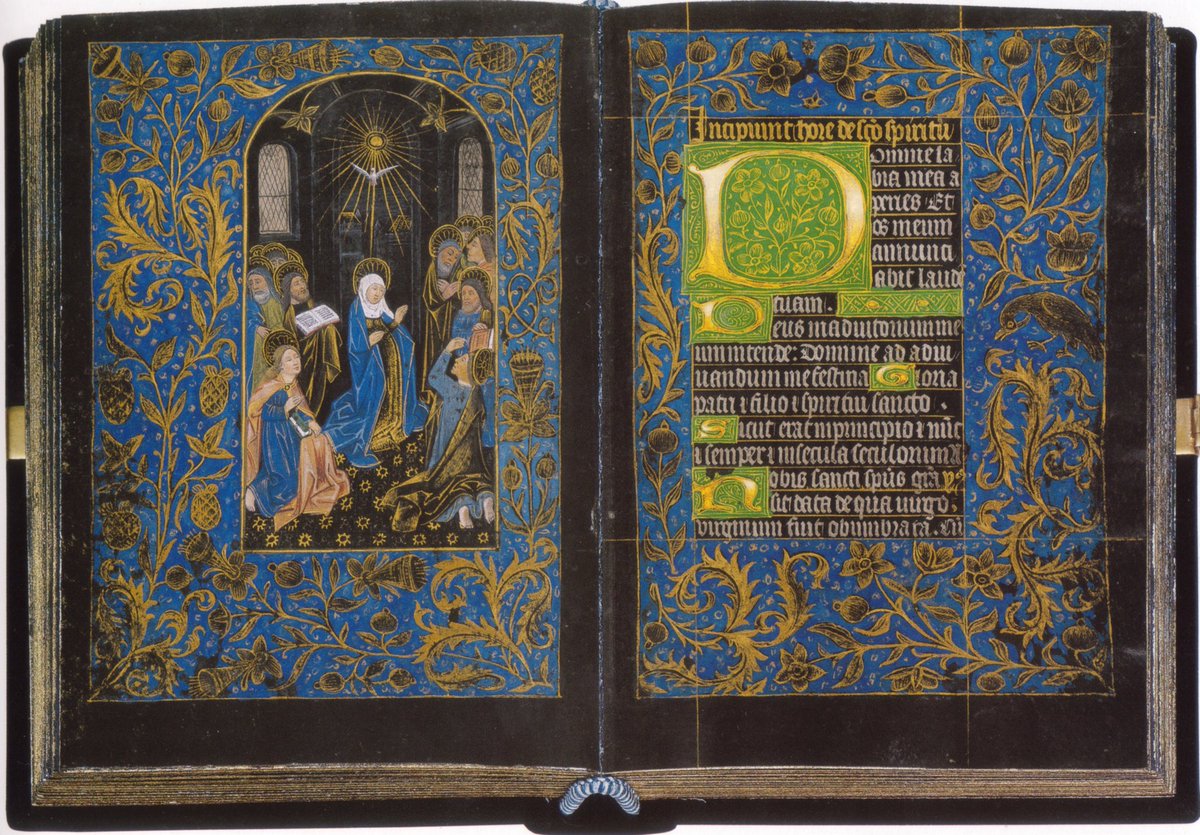 Incipiunt hore de sco spiritu
Domine la
bia mea a
peries Et
os meum
annunci
abit laude
tuam.
Deus in adiutorium me
um intende: Domine ad adiu
uandum me festina Gloria
patri ⁊ filio ⁊ spiritui sancto.
Sicut erat in principio ⁊ nūc
⁊ semper ⁊ in secula seculorum a
Nobis sancti spūs grā
sit data de qua uirgo
uirginum fuit obumbrata. Cū